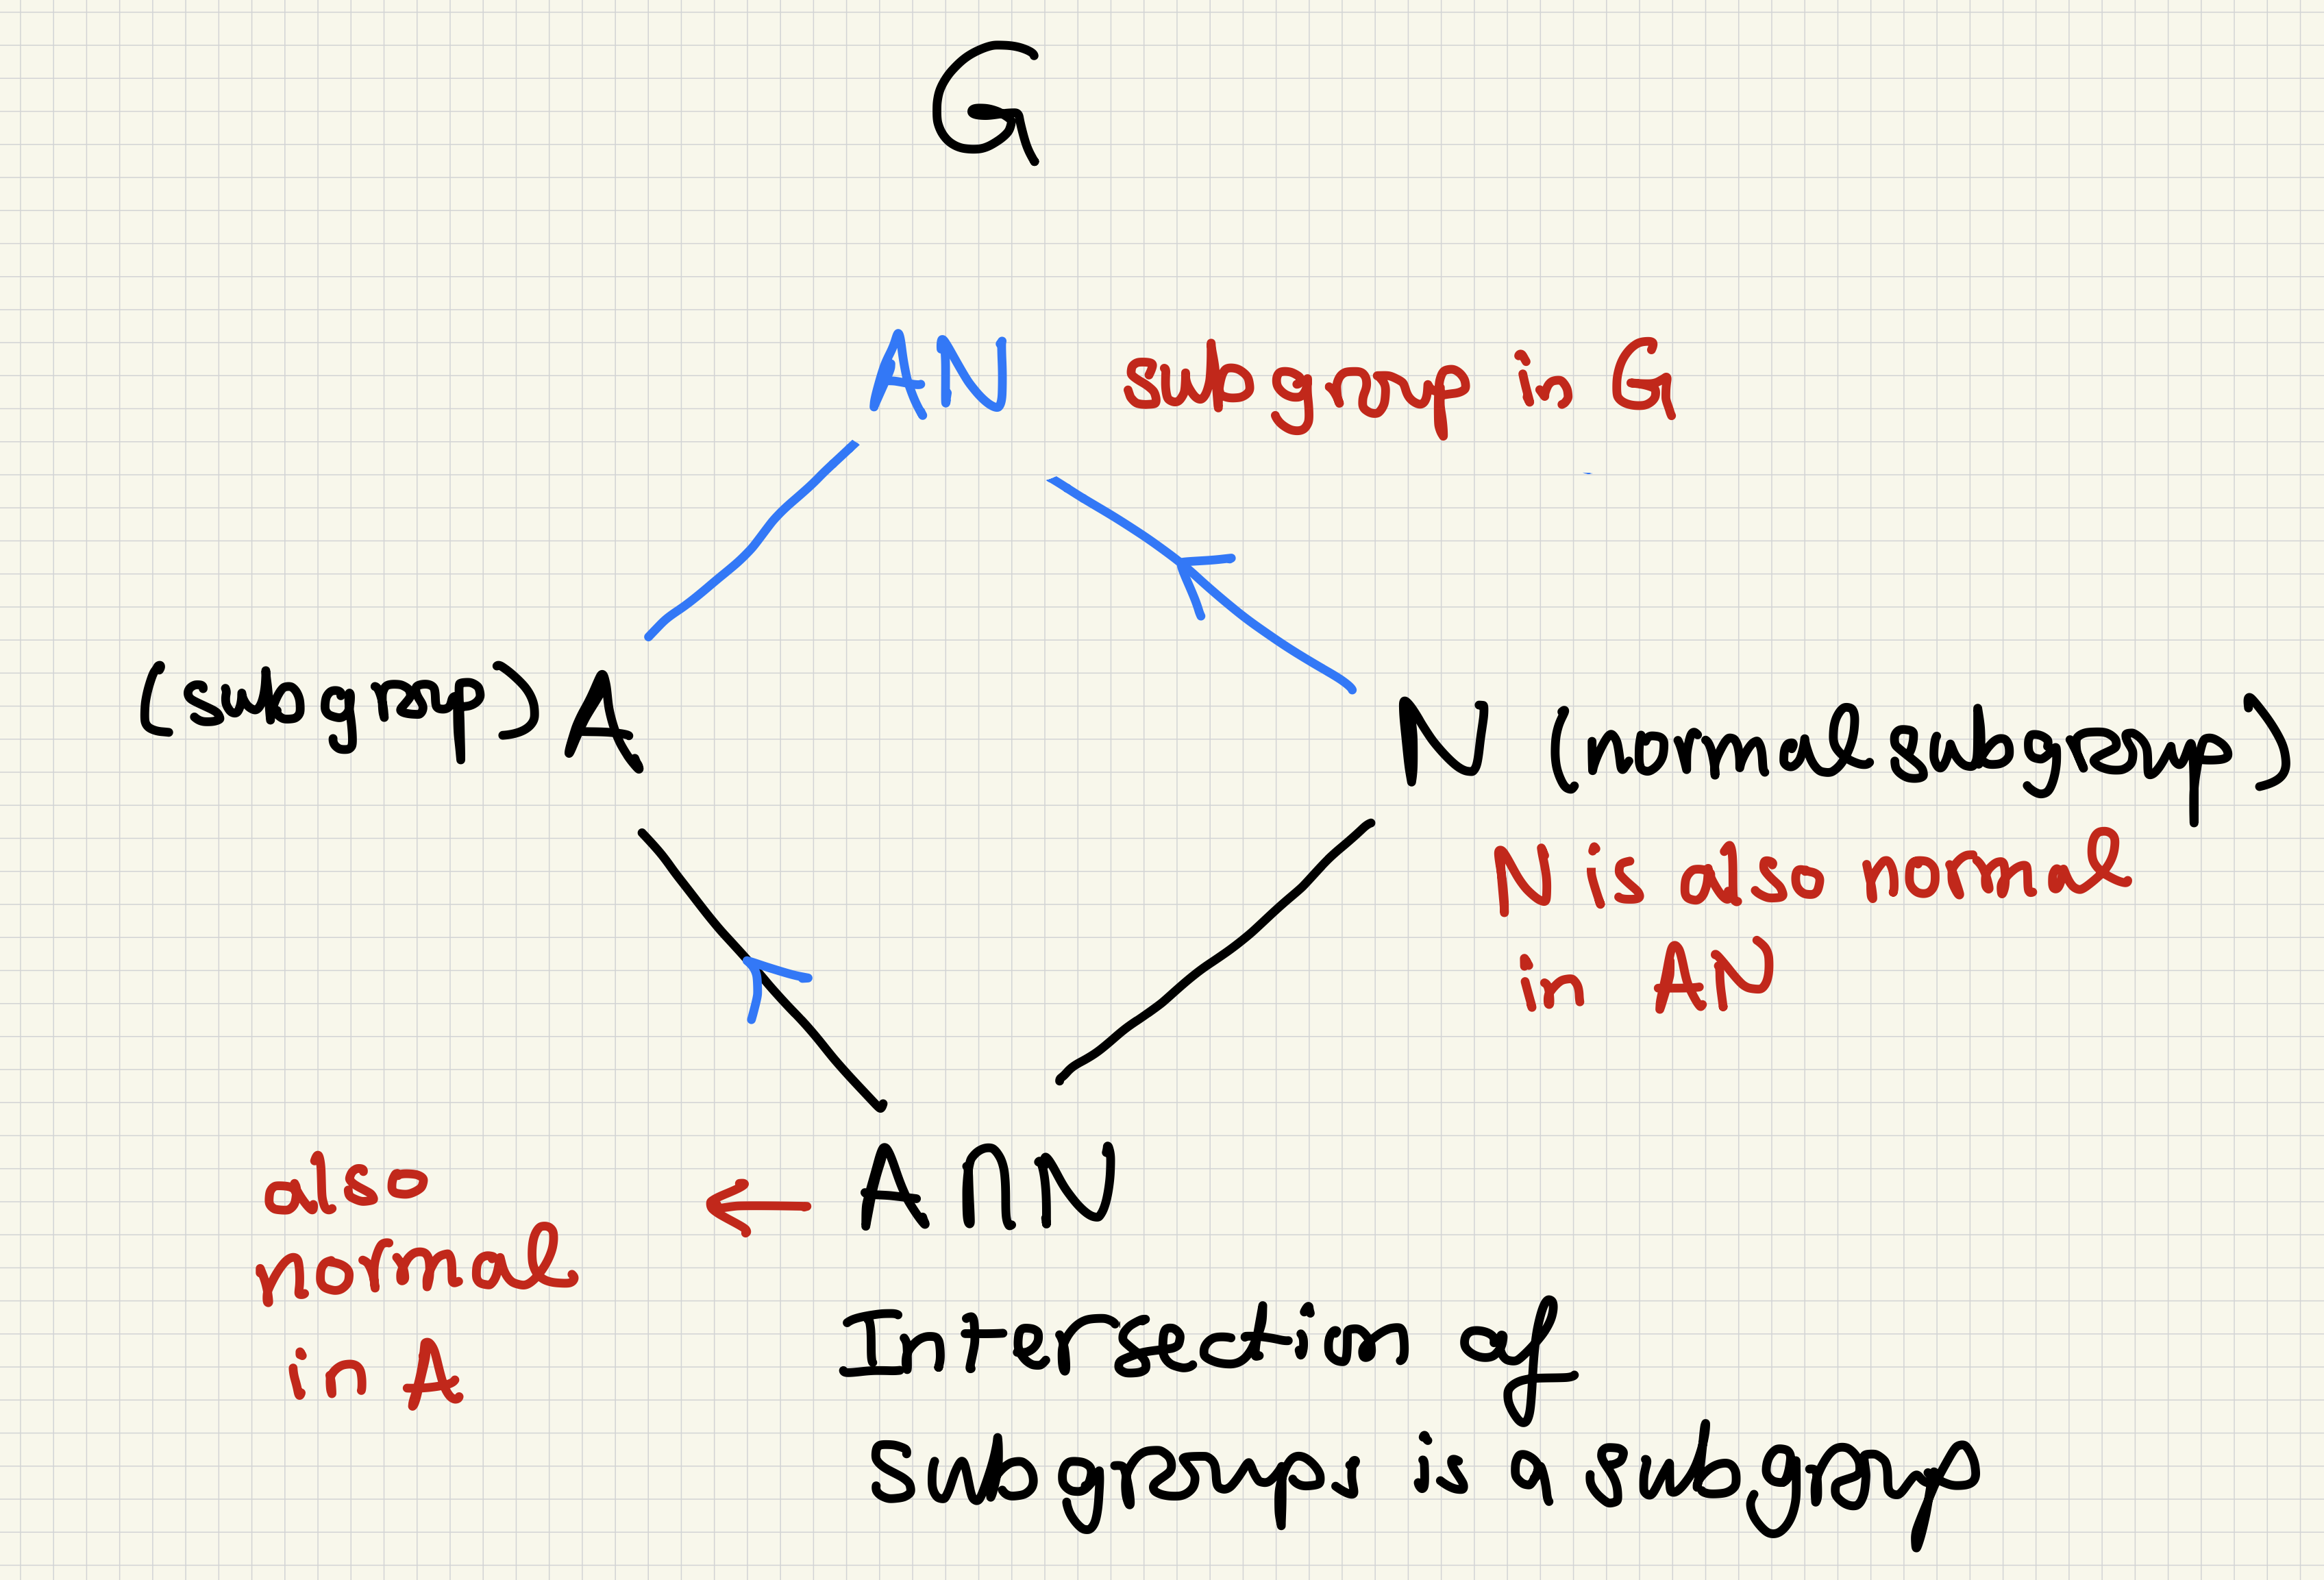 G
AN subgroup in G
(subgroup) A
N (normal subgroup)
N is also normal
in AN
A∩N
also
normal
in A
Intersection of
subgroups is a subgroup